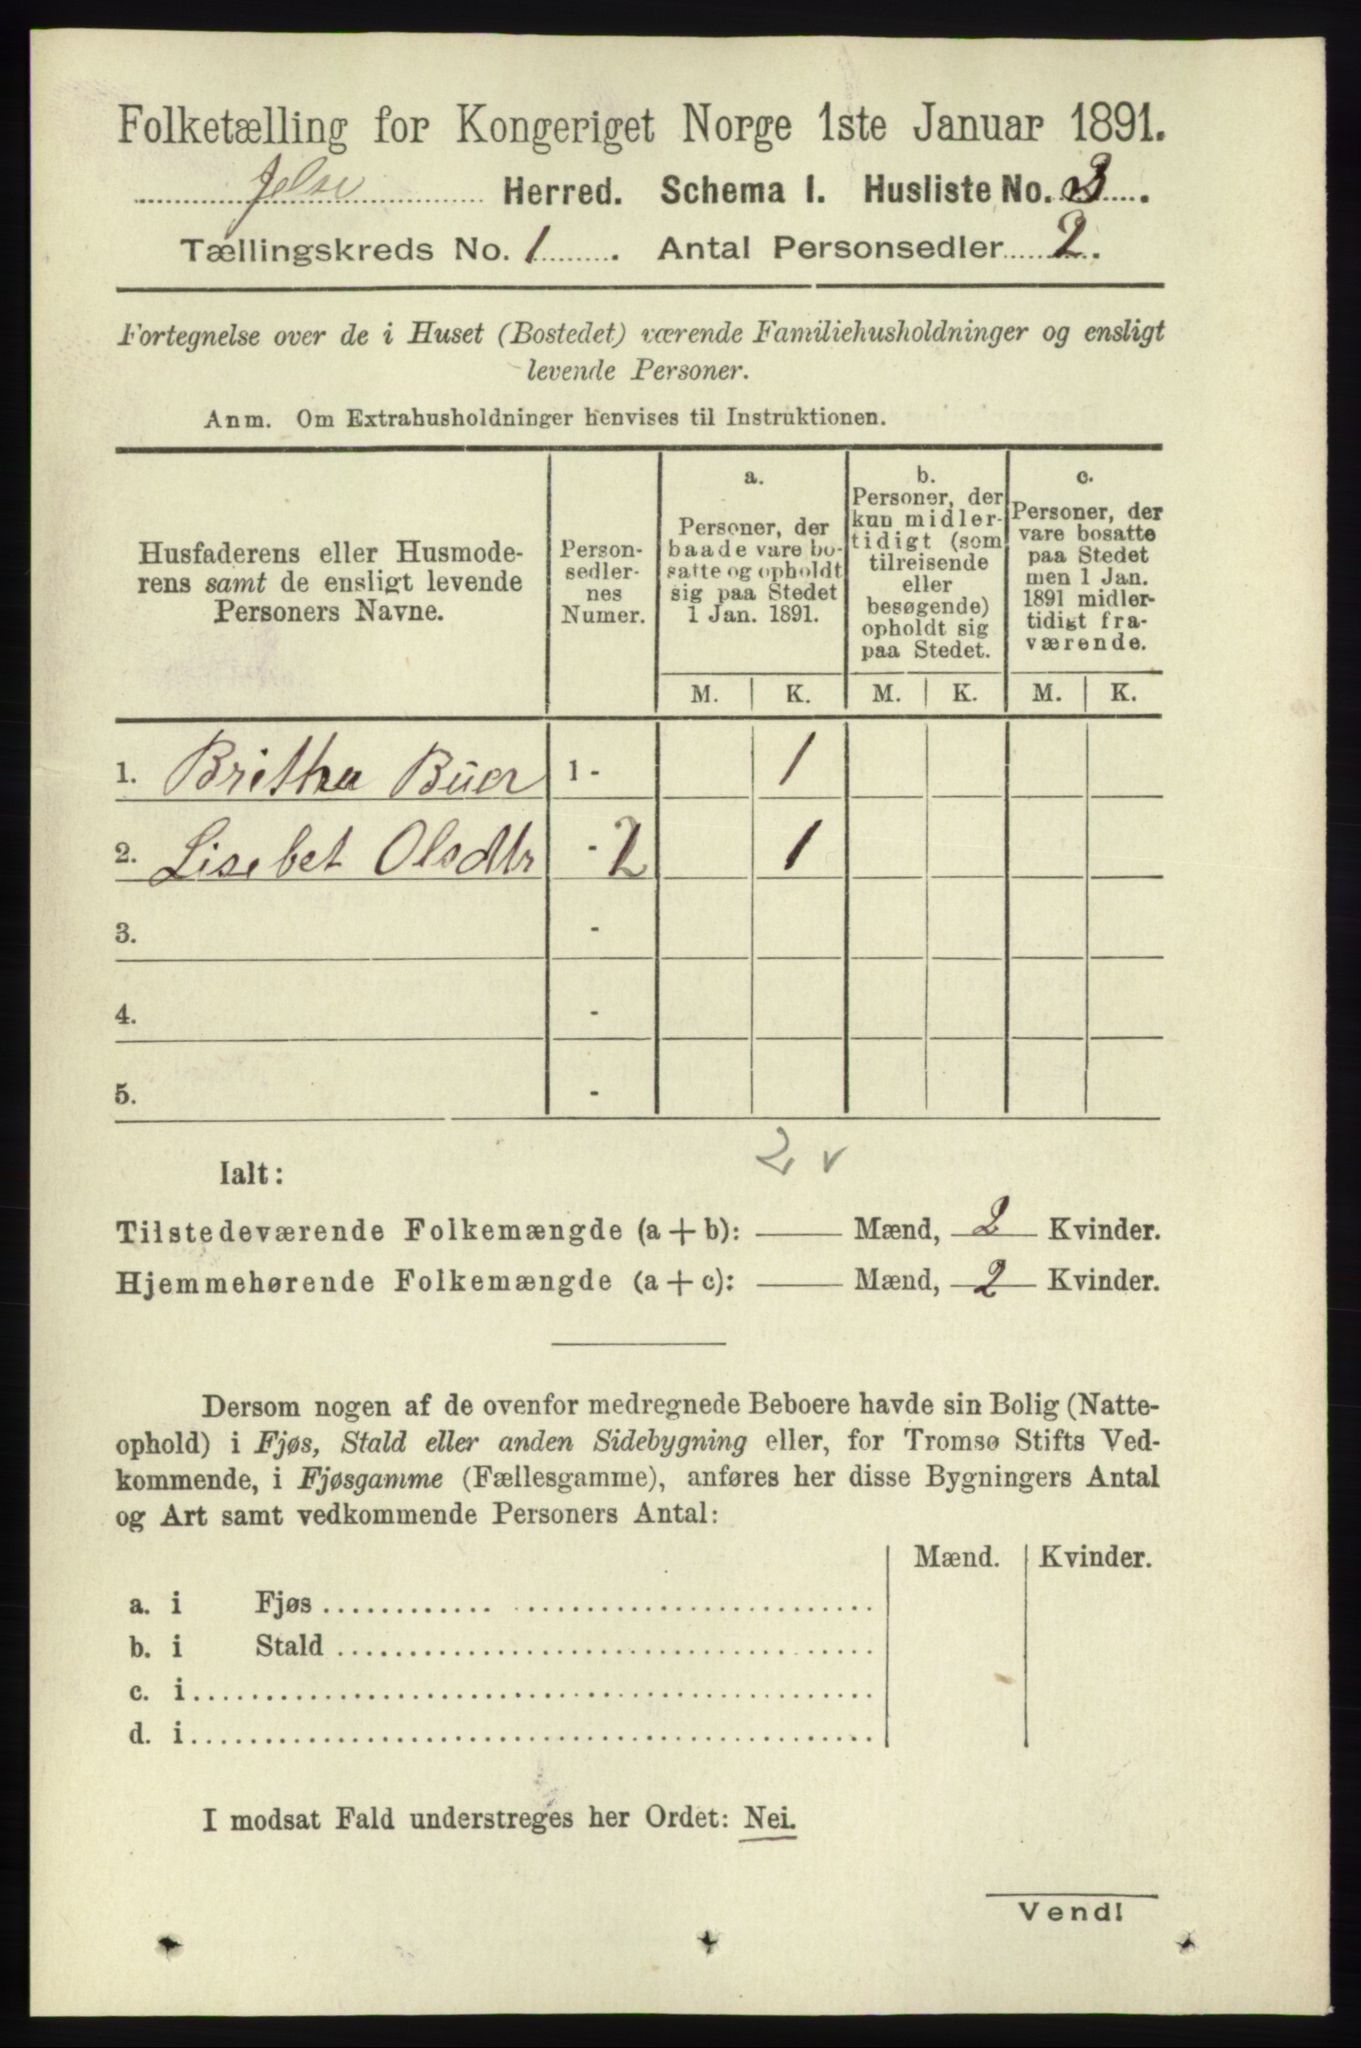 Folketælling for Kongeriget Norge 1ste Januar 1891.
Jelse Herred. Schema I. Husliste No. 3.
Tællingskreds No. 1. Antal Personsedler 2.
Fortegnelse over de i Huset (Bostedet) værende Familiehusholdninger og ensligt
levende Personer.
Anm. Om Extrahusholdninger henvises til Instruktionen.
Husfaderens eller Husmode-
rens samt de ensligt levende
Personers Navne.
Person-
sedler-
nes
Numer.
a.
Personer, der
baade vare bo-
satte og opholdt
sig paa Stedet
1 Jan. 1891.
b.
Personer, der
kun midler-
tidigt (som
tilreisende
eller
besøgende)
opholdt sig
paa Stedet.
c.
Personer, der
vare bosatte
paa Stedet
men 1 Jan.
1891 midler-
tidigt fra-
værende.
M. K. M. K. M. K.
1. Britha Buer 1 - 1
2. Lisebet Olsdtr - 2 1
3. -
4. -
5. -
2 v
Ialt:
Tilstedeværende Folkemængde (a + b): — Mænd, 2 Kvinder.
Hjemmehørende Folkemængde (a + c): — Mænd, 2 Kvinder.
Dersom nogen af de ovenfor medregnede Beboere havde sin Bolig (Natte-
ophold) i Fjøs, Stald eller anden Sidebygning eller, for Tromsø Stifts Ved-
kommende, i Fjøsgamme (Fællesgamme), anføres her disse Bygningers Antal
og Art samt vedkommende Personers Antal:
Mænd. Kvinder.
a. i Fjøs
b. i Stald
c. i
d. i
I modsat Fald understreges her Ordet: Nei.
Vend!